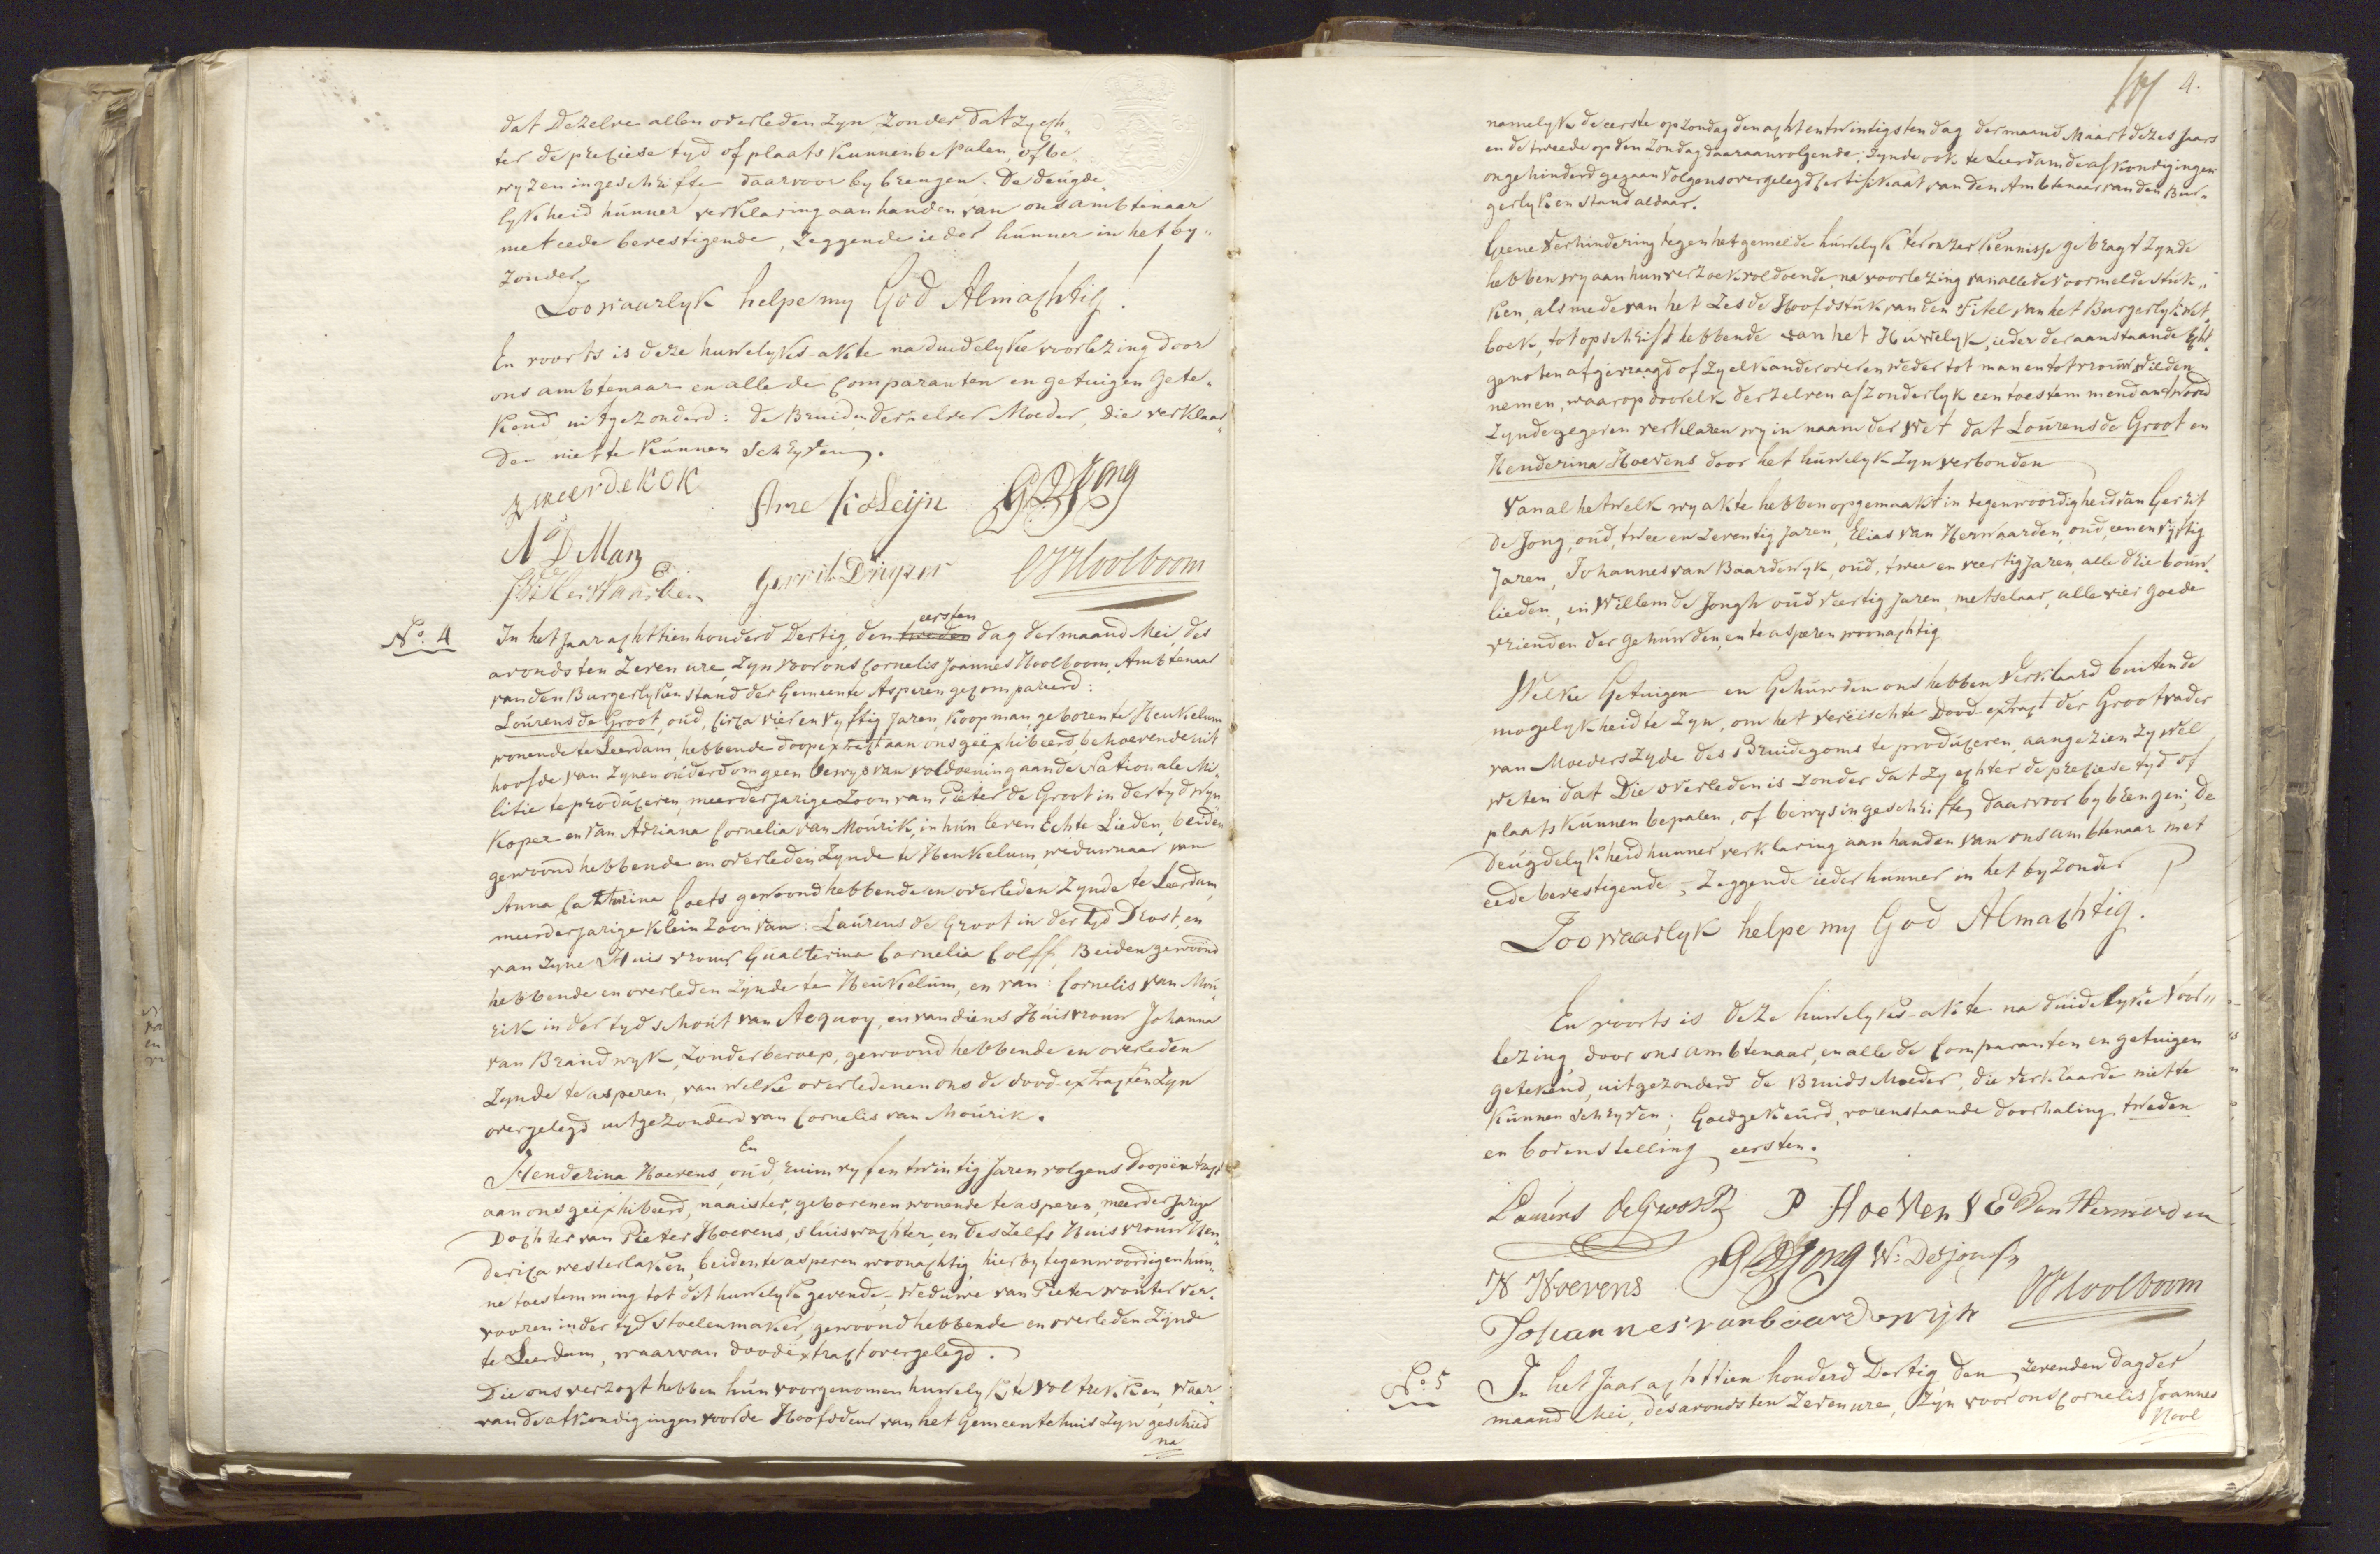 dat dezelve allen overleden zyn zonder dat zy ech„
ter de preciese tyd of plaats kunnen bepalen, of be„
wyzen in geschrifte daarvoor by brengen. De deugde„
lykheid hunner verklaring aan handen van ons ambtenaar
met eede bevestigende, zeggende ieder hunner in het by„
zonder,
Zoo waarlyk helpe my God Almachtig!
En voorts is deze huwelyks-akte na duidelyke voorlezing door
ons ambtenaar en alle de comparanten en getuigen gete„
kend uitgezonderd: de Bruid en derzelver Moeder, die verklaar„
den niet te kunnen schryven.
de Kok
Arie G D Jong
Gerrit CJ Hoolboom
No. 4
eersten
In het jaar achttien honderd dertig, den tweeden dag der maand Mei, des
avonds ten zeven ure, zyn voor ons Cornelis Joannes Hoolboom, Ambtenaar
van den Burgerlyken stand der Gemeente Asperen gecompareerd:
Lourens de Groot, oud, circa vier en vyftig jaren, koopman, geboren te Heukelum
wonende te Leerdam, hebbende doopextract aan ons geëxhibeerd, behoevende uit
hoofde van zynen ouderdom geen bewys van voldoening aan de Nationale Mi„
litie te produceren, meerderjarige Zoon van Pieter de Groot in der tyd wyn
koper en van Adriana Cornelia van Mourik, in hun leven Echte Lieden, beiden
gewoond hebbende en overleden zynde te Heukelum weduwnaar van
Anna Catharina Coets gewoond hebbende en overleden zynde te Leerdam
meerderjarige klein zoon van: Laurens de Groot in der tyd Drost, en
van zyne Huisvrouw Gualterina Cornelia Colff, Beiden gewoond
hebbende en overleden zynde te Heukelum, en van: Cornelis van Mou„
rik in der tyd schout van Acquoy, en van diens Huisvrouw Johanna
van Brandwyk, zonder beroep, gewoond hebbende en overleden
zynde te asperen, van welke overledenen ons de dood-extracten zyn
overgelegd uitgezonderd van Cornelis van Mourik.
En
Henderina Hoevens, oud, ruim vyf en twintig jaren volgens doopextract
aan ons geëxhibeerd, naaister, geboren en wonende te asperen, meerderjarige
Dochter van Pieter Hoevens, sluiswachter, en deszelfs Huisvrouw Hen„
derica westerlaken, beiden te asperen woonachtig, hier by tegenwoordig en hun„
ne toestemming tot dit huwelyk gevende, - Weduwe van Pieter wouter ver„
vooren in der tyd stoelenmaker, gewoond hebbende en overleden zynde
te Leerdam, waarvan doodextract overgelegd.
Die ons verzogt hebben hun voorgenomen huwelyk te voltrekken, waar„
van de afkondigingen voor de Hoofddeur van het Gemeentehuis zyn geschied
na
4.
namelyk de eerste op zondag den acht en twintigsten dag der maand Maart dezes Jaars
en de tweede op den zondag daaraanvolgende, zynde ook te Leerdam de afkondigingen
ongehinderd gegaan volgens overgelegd certifikaat van den Ambtenaar van den Bur„
gerlyken stand aldaar.
Geene verhindering tegen het gemelde huwelyk ter onzer kennisse gebragt zynde
hebben wy aan hun verzoek voldoende, na voorlezing van alle de voormelde stuk„
ken, als mede van het zesde Hoofdstuk van den Titel van het Burgerlyk wet„
boek, tot opschrift hebbende van het Huwelyk, ieder der aanstaande Echt„
genoten afgevraagd of zy elkander over en weder tot man en tot vrouw wilden
nemen, waarop door elk derzelven afzonderlyk een toestemmend antwoord
zynde gegeven verklaren wy in naam der Wet dat Lourens de Groot en
Henderina Hoevens door het huwelyk zyn verbonden
Van al hetwelk wy akte hebben opgemaakt in tegenwoordigheid van Gerrit
de Jong, oud, twee en zeventig jaren, Elias van Herwaarden, oud, een en vyftig
jaren, Johannes van Baardewyk, oud, twee en veertig jaren, alle drie bouw„
lieden, en Willem de Jongh oud veertig jaren, metselaar, alle vier goede
vrienden der gehuwden, en te asperen woonachtig
Welke Getuigen en Gehuwden ons hebben verklaard buiten de
mogelykheid te zyn, om het vereischte Dood-extract der Grootvader
van Moeders zyde des Bruidegoms te produceren, aangezien zy wel
weten dat Die overleden is zonder dat zy echter de preciese tyd of
plaats kunnen bepalen, of bewys in geschrifte daarvoor by brengen; de
deugdelykheid hunner verklaring aan handen van ons ambtenaar met
eede bevestigende, - zeggende ieder hunner in het byzonder
Zoo waarlyk helpe my God Almachtig.
En voorts is deze huwelyks-akte na duidelyke voor„
lezing door ons ambtenaar, en alle de comparanten en getuigen
getekend, uitgezonderd de Bruids Moeder, die verklaarde niet te
kunnen schryven; Goedgekeurd, vorenstaande doorhaling tweden
en bovenstelling eersten.
Laurens de Groot P Hoevens E Van Herwerden
H Hoevens G D Jong W: De Jongh
Johannes van baardewijk CJ Hoolboom
No. 5
In het Jaar achttien honderd Dertig den zevenden dag der
maand Mei, des avonds ten zeven ure, zyn voor ons Cornelis Joannes
Hool